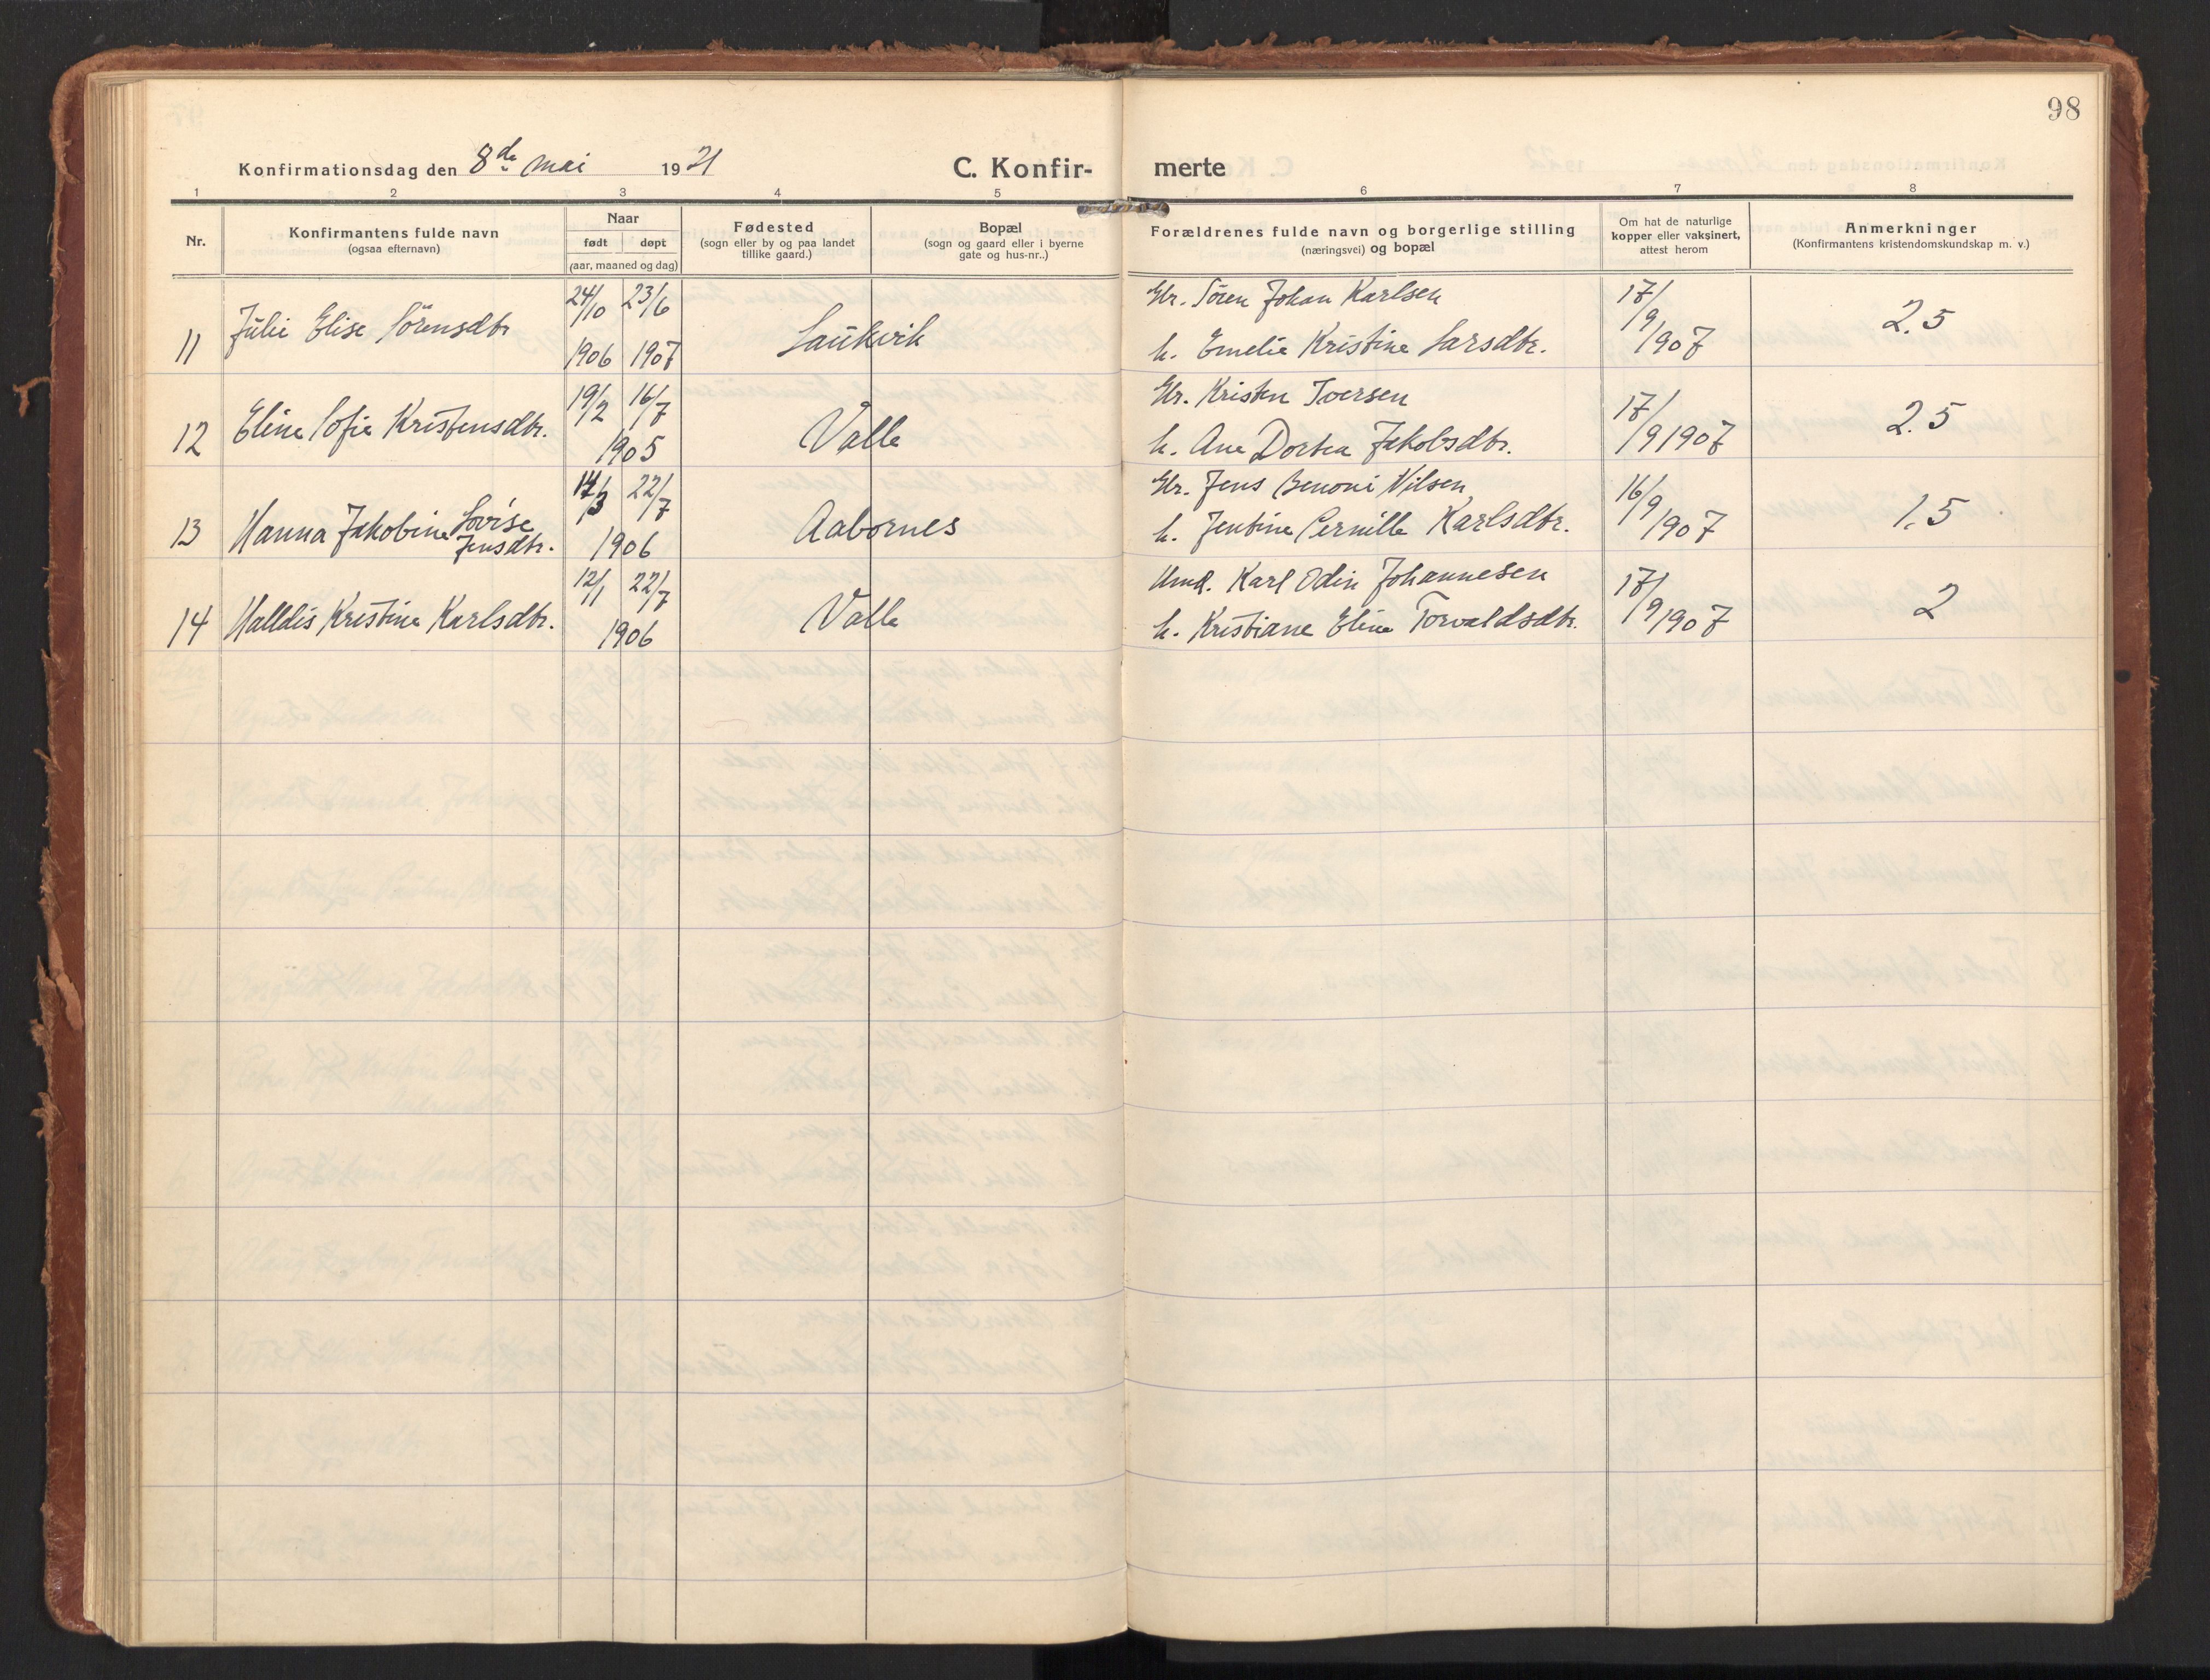 98
Konfirmationsdag den 8de mai 1921
C. Konfir- merte
1 2 3 4 5 6 7 8
Nr.
Konfirmantens fulde navn
(ogsaa efternavn)
Naar
født døpt
(aar, maaned og dag)
Fødested
(sogn eller by og paa landet
tillike gaard.)
Bopæl
(sogn og gaard eller i byerne
gate og hus-nr..)
Forældrenes fulde navn og borgerlige stilling
(næringsvei) og bopæl
Om hat de naturlige
kopper eller vaksinert,
attest herom
Anmerkninger
(Konfirmantens kristendomskundskap m. v.)
11 Julie Elise Sörensdtr 24/10 1906 23/6 1907 Laukvik
Gr. Sören Johan Karlsen
h. Emelie Kristine Larsdtr.
17/9 1907
2.5
12 Eline Sofie Kristensdtr. 19/2 16/7 1905 Valle
Gr. Kristen Iversen
h. Ane Dortea Jakobsdtr.
17/9 1907
2.5
13 Hanna Jakobine Lovise
Jensdtr. 14/3 22/7 1906 Aabornes
Gr. Jens Benoni Nilsen
h. Jentine Pernille Karlsdtr.
16/9 1907
1,5
14 Halldis Kristine Karlsdtr. 12/1 22/7 1906 Valle
Hmd. Karl Odin Johannesen
h. Kristiane Eline Torvaldsdtr.
17/9 1907
2